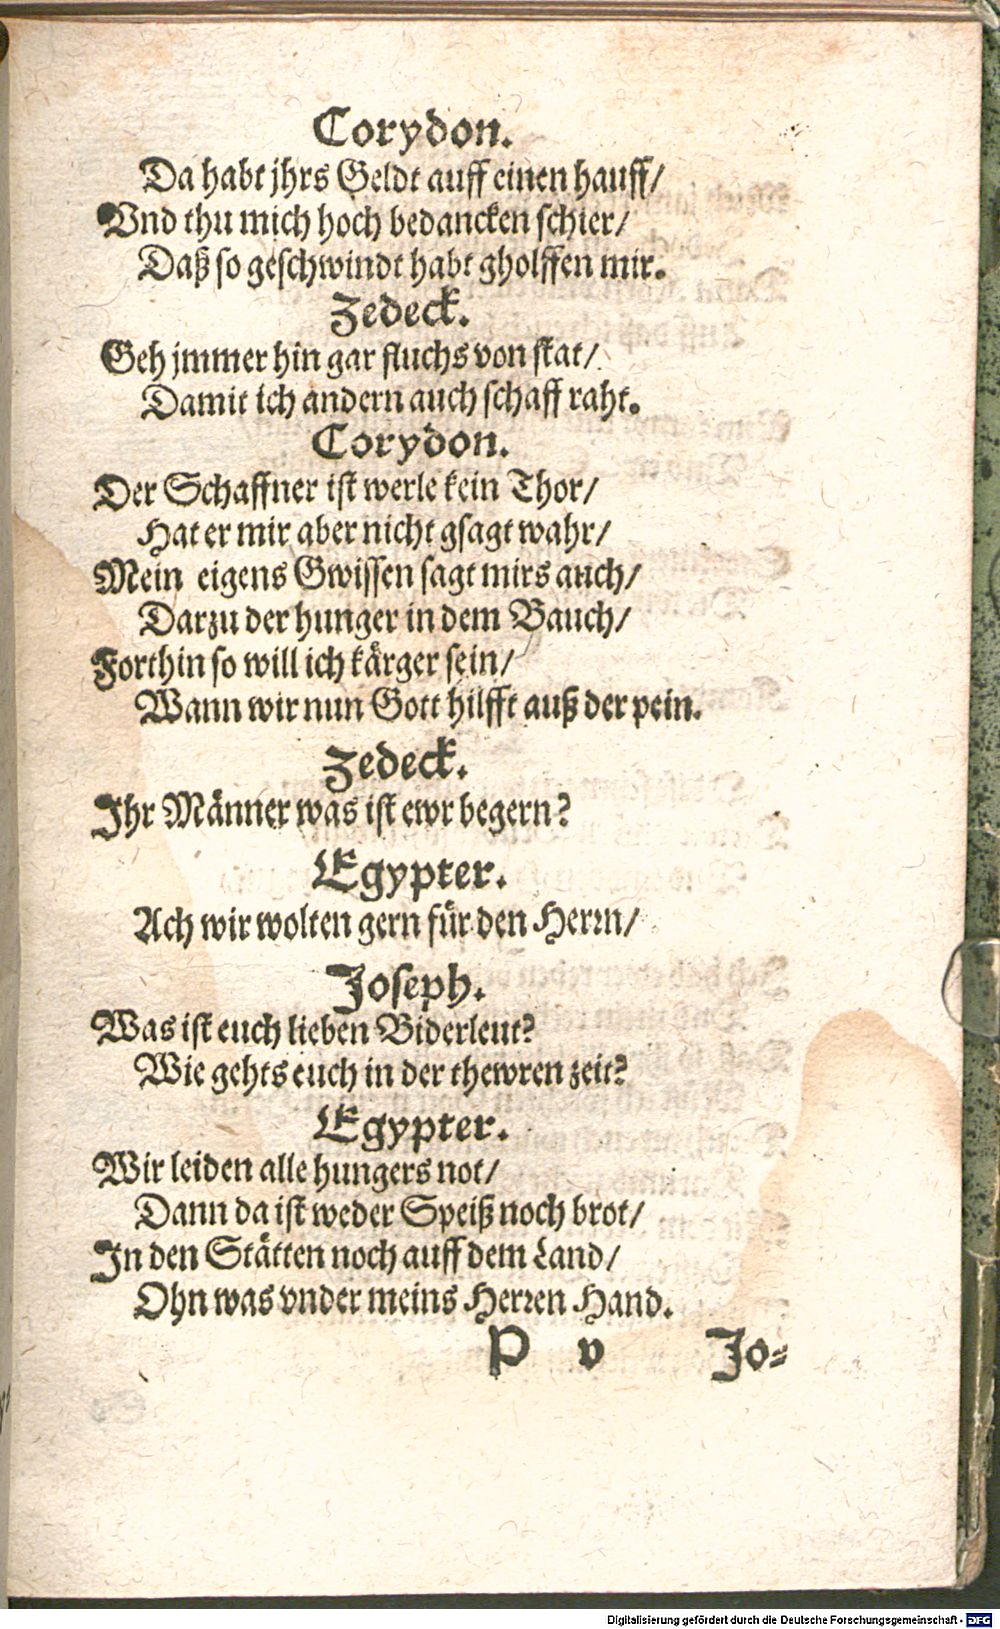 Corydon.
Da habt jhrs Geldt auff einen hauff/
Vnd thu mich hoch bedancken schier/
Daß so geschwindt habt gholffen mir.
Zedeck.
Geh jmmer hin gar fluchs von stat/
Damit ich andern auch schaff raht.
Corydon.
Der Schaffner ist werle kein Thor/
Hat er mir aber nicht gsagt wahr/
Mein eigens Gwissen sagt mirs auch/
Darzu der hunger in dem Bauch/
Forthin so will ich kärger sein/
Wann wir nun Gott hilfft auß der pein.
Zedeck.
Ihr Männer was ist ewr begern?
Egypter.
Ach wir wolten gern für den Herrn/
Joseph.
Was ist euch lieben Biderleut?
Wie gehts euch in der thewren zeit?
Egypter.
Wir leiden alle hungers not/
Dann da ist weder Speiß noch brot/
In den Stätten noch auff dem Land/
Ohn was vnder meins Herren Hand.
P v Jo-
Digitalisierung gefördert durch die Deutsche Forschungsgemeinschaft - DFG